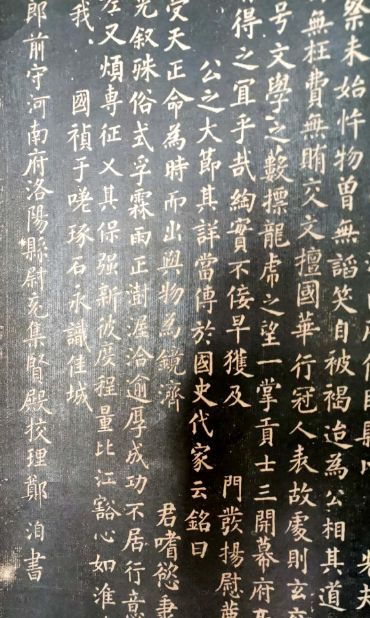 察未始忤物曾無諂笑自被褐迨為公相其道
無枉費無賄交文擅國華行冠人表故處則玄
号文學之數標龍虎之望一掌貢士三開幕府
得之冝乎哉綯實不佞早獲及 門發揚慰薦
公之大節其詳當傳於國史代家云銘曰
受天正命為時而出與物為鏡濟 君嗜慾
光叙殊俗式孚霖雨正澍渥洽逾厚成功不居行意
左又煩專征乂其保强新彼度程量比江豁心如淮
我 國禎于嗟琢石永識佳城
郎前守河南府洛陽縣尉充集賢殿校理鄭洎書